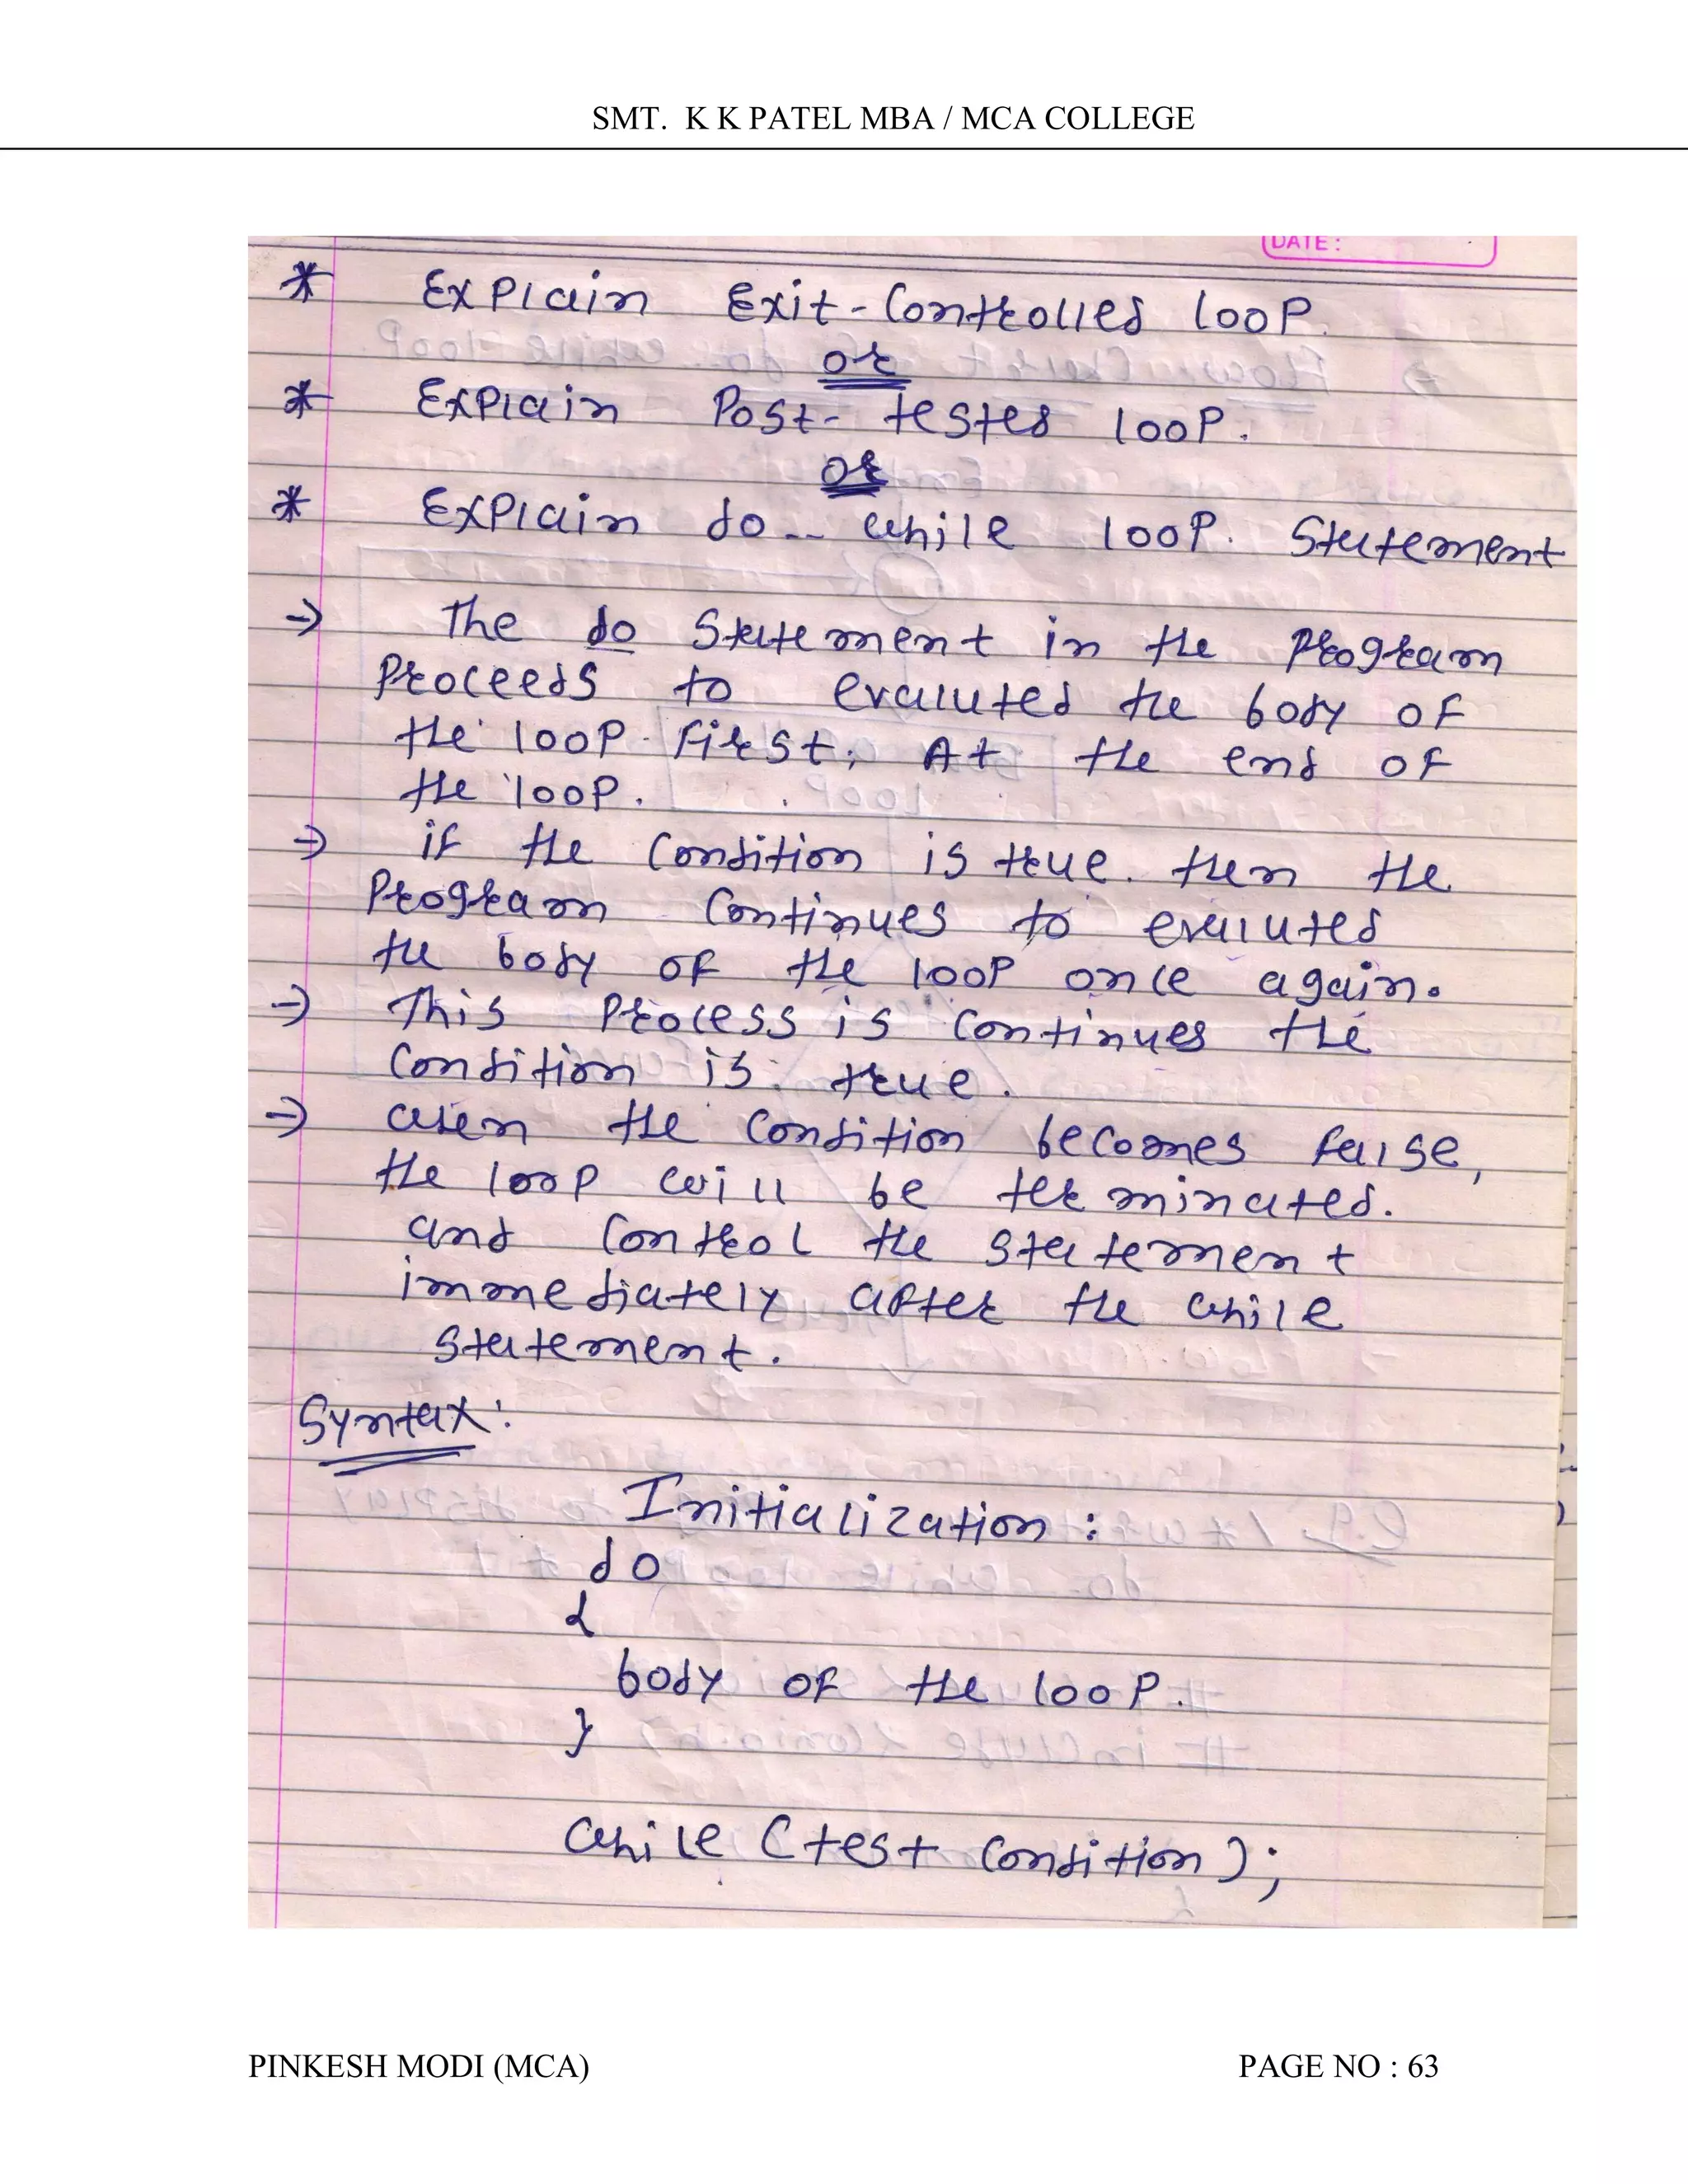 SMT. K K PATEL MBA / MCA COLLEGE
DATE:
* Explain Exit-Controlled loop.
or
* Explain Post-tested loop.
or
* Explain do-- while loop. Statement
→ The do Statement in the Program
Proceeds to evaluted the body of
the loop first; At the end of
the loop.
→ if the Condition is true. then the
Program Continues to evaluted
the body of the loop once again.
→ This Process is Continues the
Condition is true.
→ when the Condition becomes false,
the loop will be terminated.
and Control the statement
immediately after the while
statement.
Syntax:
Initialization :
do
{
body of the loop.
}
while (test Condition);
PINKESH MODI (MCA) PAGE NO : 63